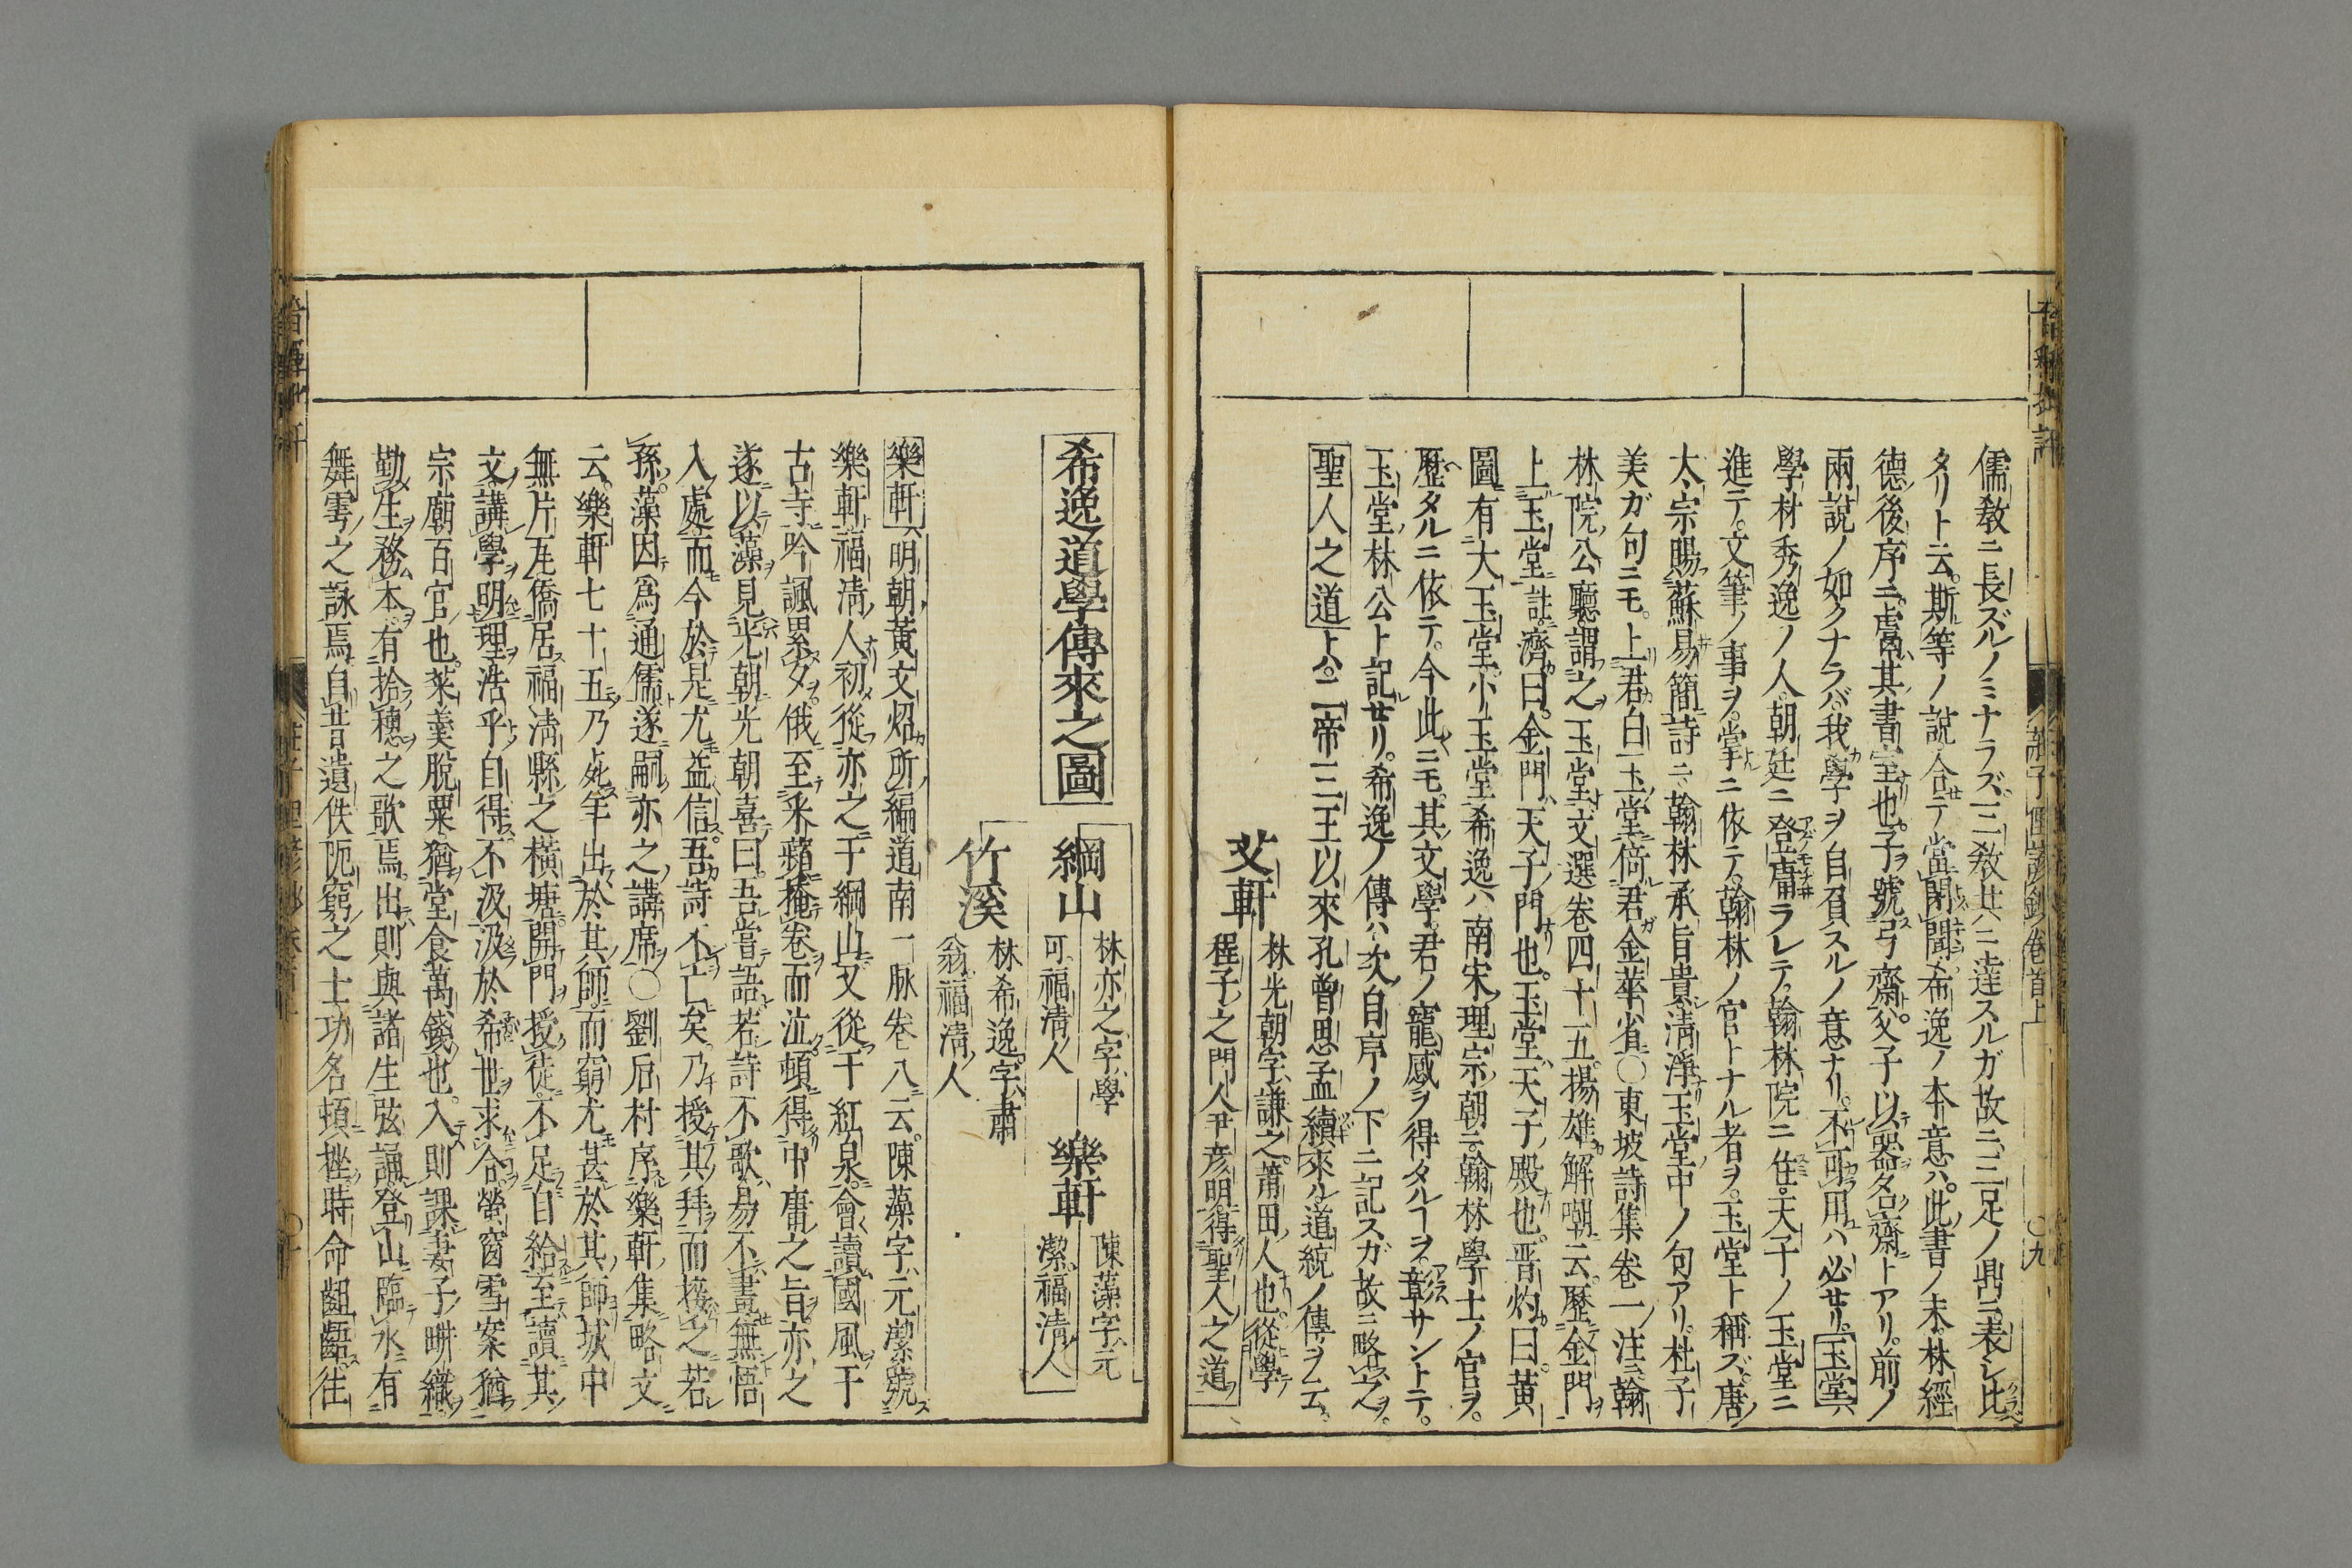 莊子俚諺鈔卷首上
〇九
儒教ニ長ズルノミナラズ三教共ニ達スルガ故ニ三足ノ鼎ニ表シ比
タリト云斯等ノ說合テ當聞希逸ノ本意ハ此書ノ末林經
德後序ニ鬳其書室也子ヲ號弓齋父子以器名齋トアリ前ノ
兩說ノ如クナラバ我學ヲ自負スルノ意ナリ不可用ハ必セリ玉堂ハ
學材秀逸ノ人朝廷ニ登庸ラレテ翰林院ニ住天子ノ玉堂ニ
進テ文筆ノ事ヲ掌ニ依テ翰林ノ官トナル者ヲ玉堂ト稱ズ唐ノ
太宗賜蘇易簡詩ニ翰林承旨貴淸淨玉堂中ノ句アリ杜子
美ガ句ニモ上君白玉堂倚君金華省〇東坡詩集卷一ノ注ニ翰
林院公廳謂之玉堂文選卷四十五揚雄解嘲云歷金門
上玉堂註濟曰金門天子門也玉堂天子殿也晋灼曰黃
圖有大玉堂小玉堂希逸ハ南宋理宗朝ニ翰林學士ノ官ヲ
歷タルニ依テ今此ニモ其文學君ノ寵感ヲ得タルヿヲ彰サントテ
玉堂林公ト記セリ希逸ノ傳ハ次自序ノ下ニ記スガ故ニ略之
聖人之道トハ二帝三王以來孔曾思孟續來ル道統ノ傳ヲ云
艾軒
林光朝字謙之莆田人也從學
程子之門人尹彥明得聖人之道
希逸道學傳來之圖
綱山
林亦之字學
可福淸人
樂軒
陳藻字元
潔福淸人
竹溪
林希逸字肅
翁福淸人
樂軒ハ明朝黃文炤所編道南一脉卷八云陳藻字元潔號
樂軒福淸人初從亦之于綱山又從于紅泉會讀國風于
古寺吟諷累夕俄至采蘋掩卷而泣頓得中庸之旨亦之
遂以藻見光朝光朝喜曰吾嘗語若詩不歌易不畫無悟
入處而今於是尤益信吾詩不亡矣乃授其拜而接之若
孫藻因爲通儒遂嗣亦之講席〇劉后村序樂軒集略文
云樂軒七十五乃死羊出於其師而窮尤甚於其師城中
無片瓦僑居福淸縣之橫塘開門授徒不足自給至讀其
文講學明理浩乎自得不汲汲於希世求合螢窗雪案猶
宗廟百官也菜羹脫粟猶堂食萬錢也入則課妻子畊織
勤生務本有拾穗之歌焉出則與諸生弦誦登山臨水有
舞雩之詠焉自昔遺佚阨窮之士功名頓挫時命齟齬往